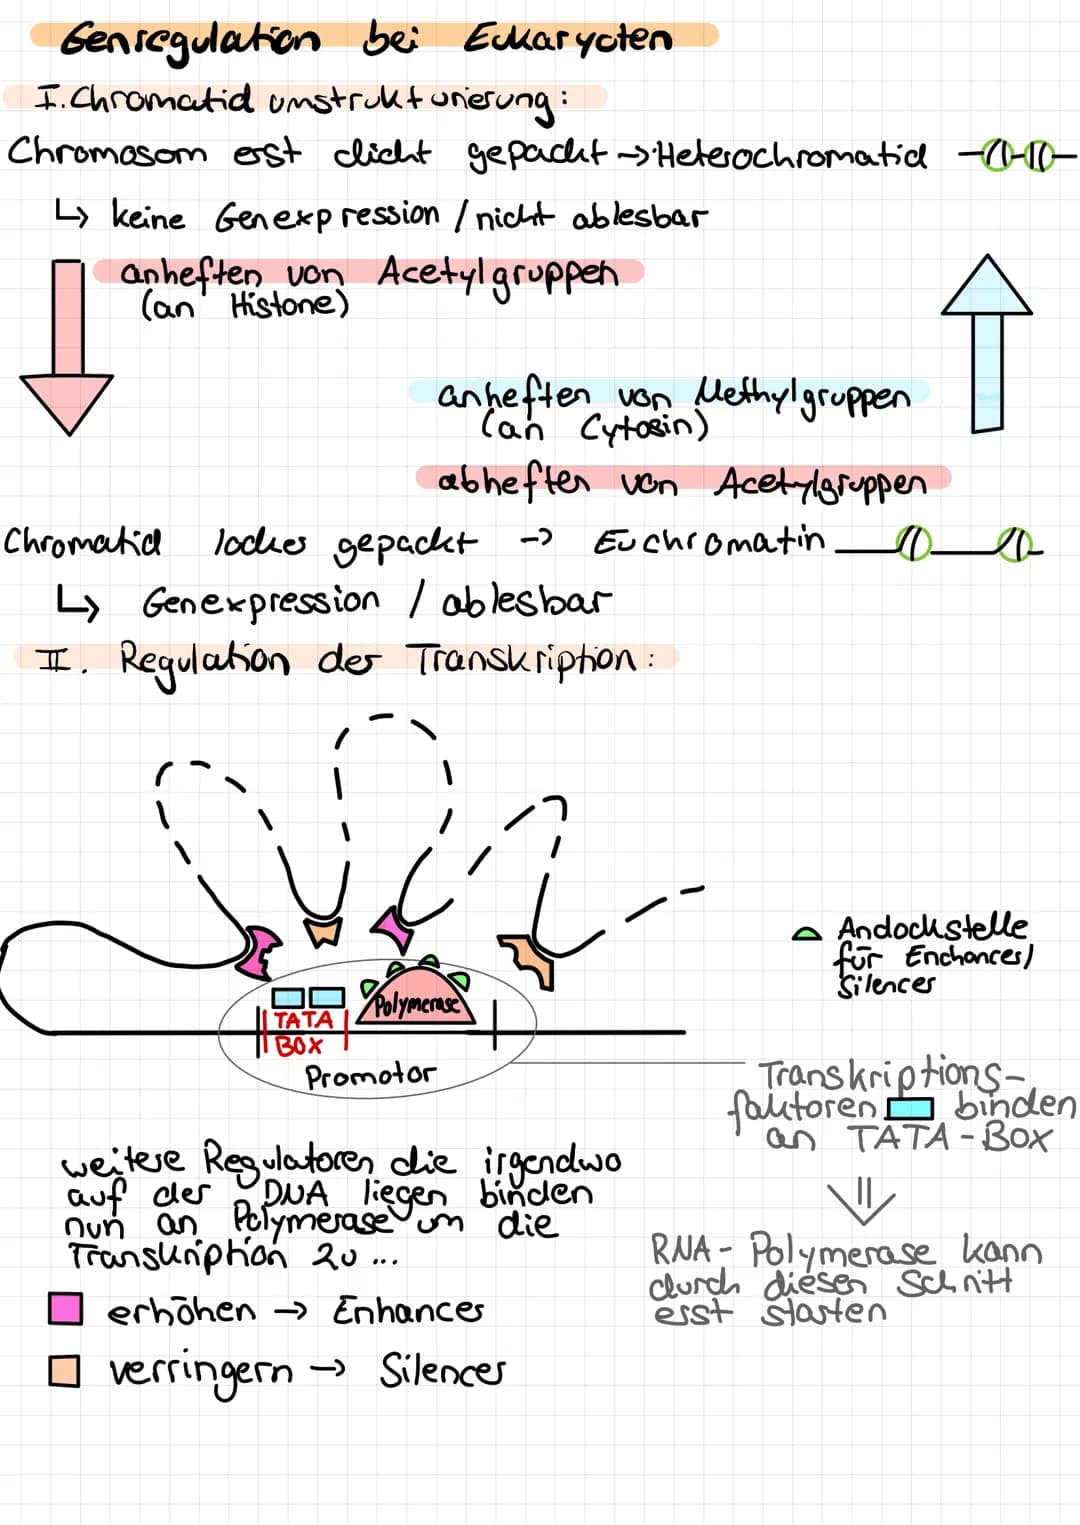 Genregulation bei Eukaryoten
I. Chromatid umstrukturierung:
Chromosom erst dicht gepackt → Heterochromatid
↳ keine Genexpression / nicht ablesbar
anheften von Acetylgruppen
(an Histone)
anheften von Methylgruppen
(an Cytosin)
abheften von Acetylgruppen
Chromatid locker gepackt -> Euchromatin
↳ Genexpression / ablesbar
II. Regulation der Transkription:
Andockstelle
für Enchancer/
Silencer
Polymerase
TATA
BOX
Promotor
Transkriptions-
faktoren binden
an TATA-Box
⇓
RNA-Polymerase kann
durch diesen Schritt
erst starten
weitere Regulatoren die irgendwo
auf der DNA liegen binden
nun an Polymerase um die
Transkription zu ...
erhöhen → Enhancer
verringern → Silencer